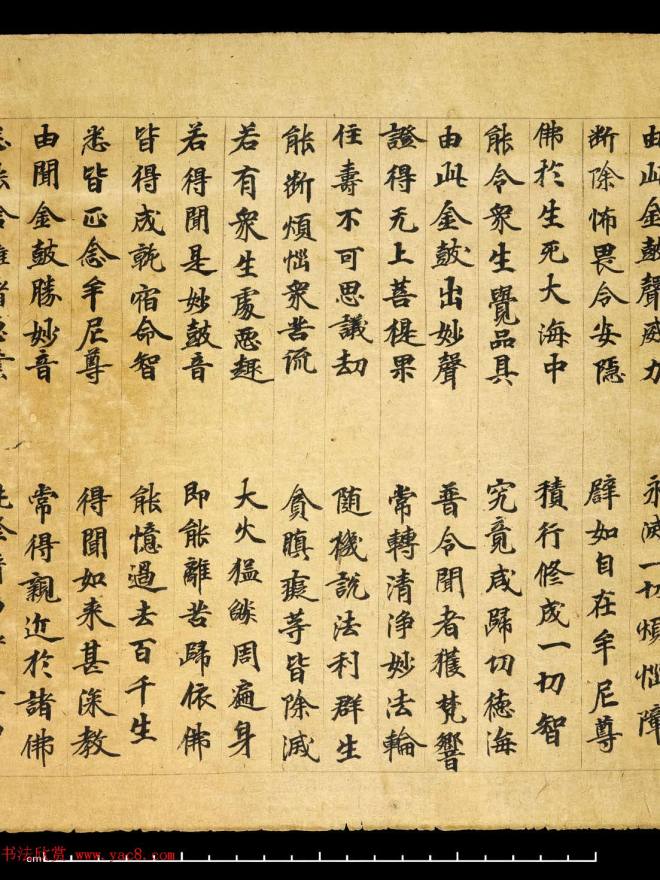 由此金鼓聲威力 永滅一切煩惱障
斷除怖畏令安隱 辟如自在牟尼尊
佛於生死大海中 積行修成一切智
能令衆生覺品具 究竟咸歸切德海
由此金鼓出妙聲 普令聞者獲梵響
證得无上菩提果 常轉清淨妙法輪
住壽不可思議劫 随機說法利群生
能斷煩惱衆苦流 貪瞋癡等皆除滅
若有衆生處惡趣 大火猛焰周遍身
若得聞是妙鼓音 即能離苦歸依佛
皆得成就宿命智 能憶過去百千生
悉皆正念牟尼尊 得聞如来甚深教
由聞金鼓勝妙音 常得親近於諸佛
书法欣赏 www.yac8.com
cm